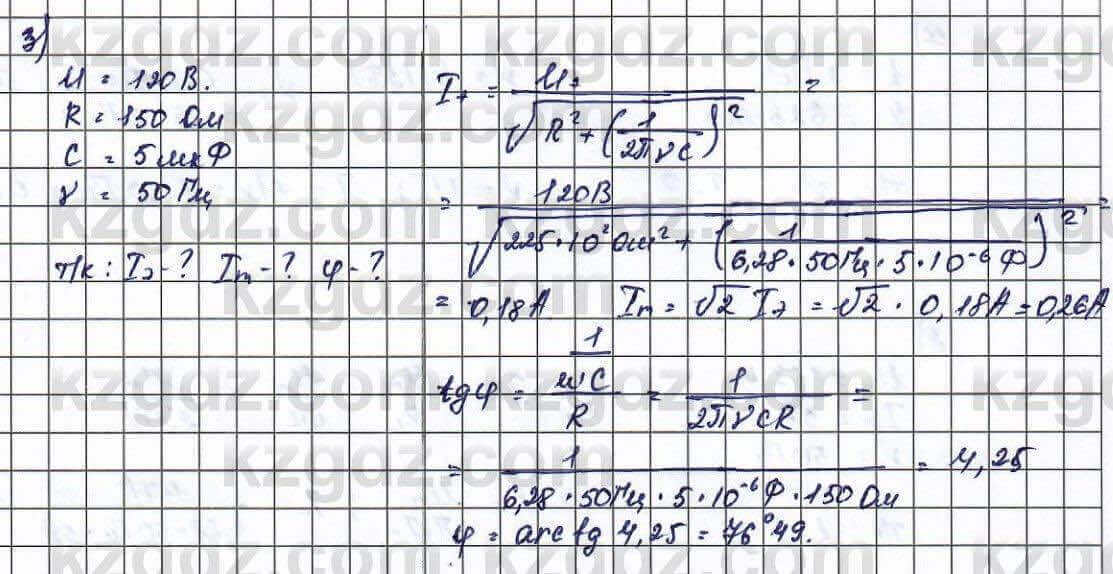 3)
U = 120 В.
R = 150 Ом
C = 5 мкФ
γ = 50 Гц
Т/к: Iэ - ? Im - ? φ - ?
Iэ = Uэ / √(R² + (1 / 2πγC)²) =
= 120 В / √(225 · 10² Ом² + (1 / 6,28 · 50 Гц · 5 · 10⁻⁶ Ф)²) =
= 0,18 А Im = √2 Iэ = √2 · 0,18 А = 0,26 А
tgφ = (1 / ωC) / R = 1 / 2πγCR =
= 1 / 6,28 · 50 Гц · 5 · 10⁻⁶ Ф · 150 Ом = 4,25
φ = arctg 4,25 = 76°49.
kzgdz.com